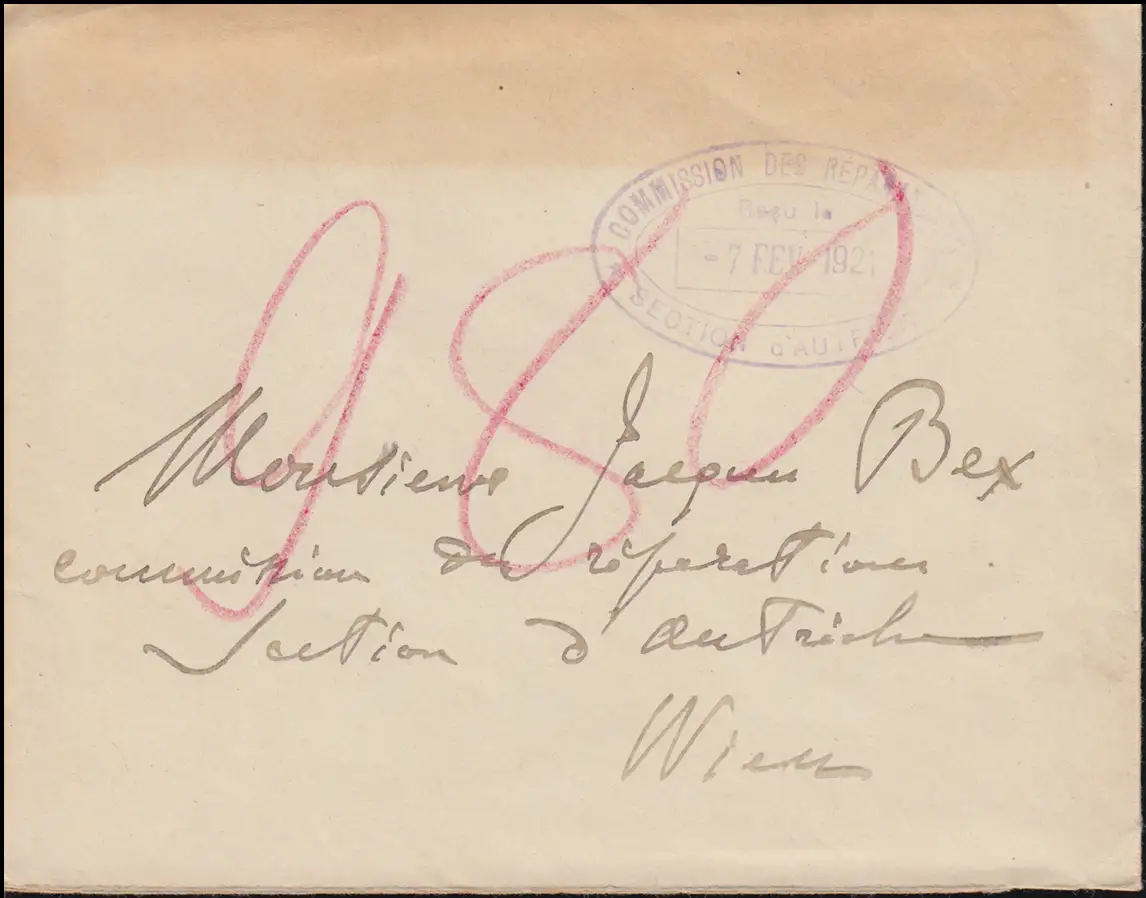 COMMISSION DES RÉPARATIONS
Reçu le
-7 FEV 1921
SECTION d'AUTRICHE
980
Monsieur Jacques Bex
commission des réparations
Section d'Autriche
Wien